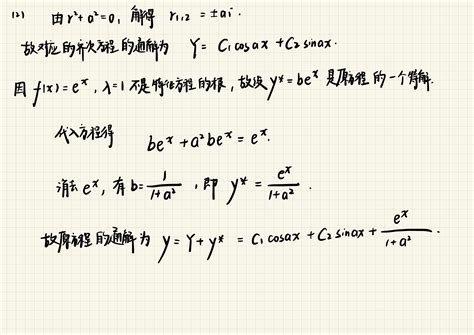 (2) 由 r²+a²=0, 解得 r₁,₂ = ±ai.
故对应的齐次方程的通解为 Y = C₁cosax + C₂sinax.
因 f(x) = eˣ, λ=1 不是特征方程的根, 故设 y* = beˣ 是原方程的一个特解.
代入方程得 beˣ + a²beˣ = eˣ.
消去 eˣ, 有 b = 1/(1+a²), 即 y* = eˣ/(1+a²).
故原方程的通解为 y = Y + y* = C₁cosax + C₂sinax + eˣ/(1+a²).